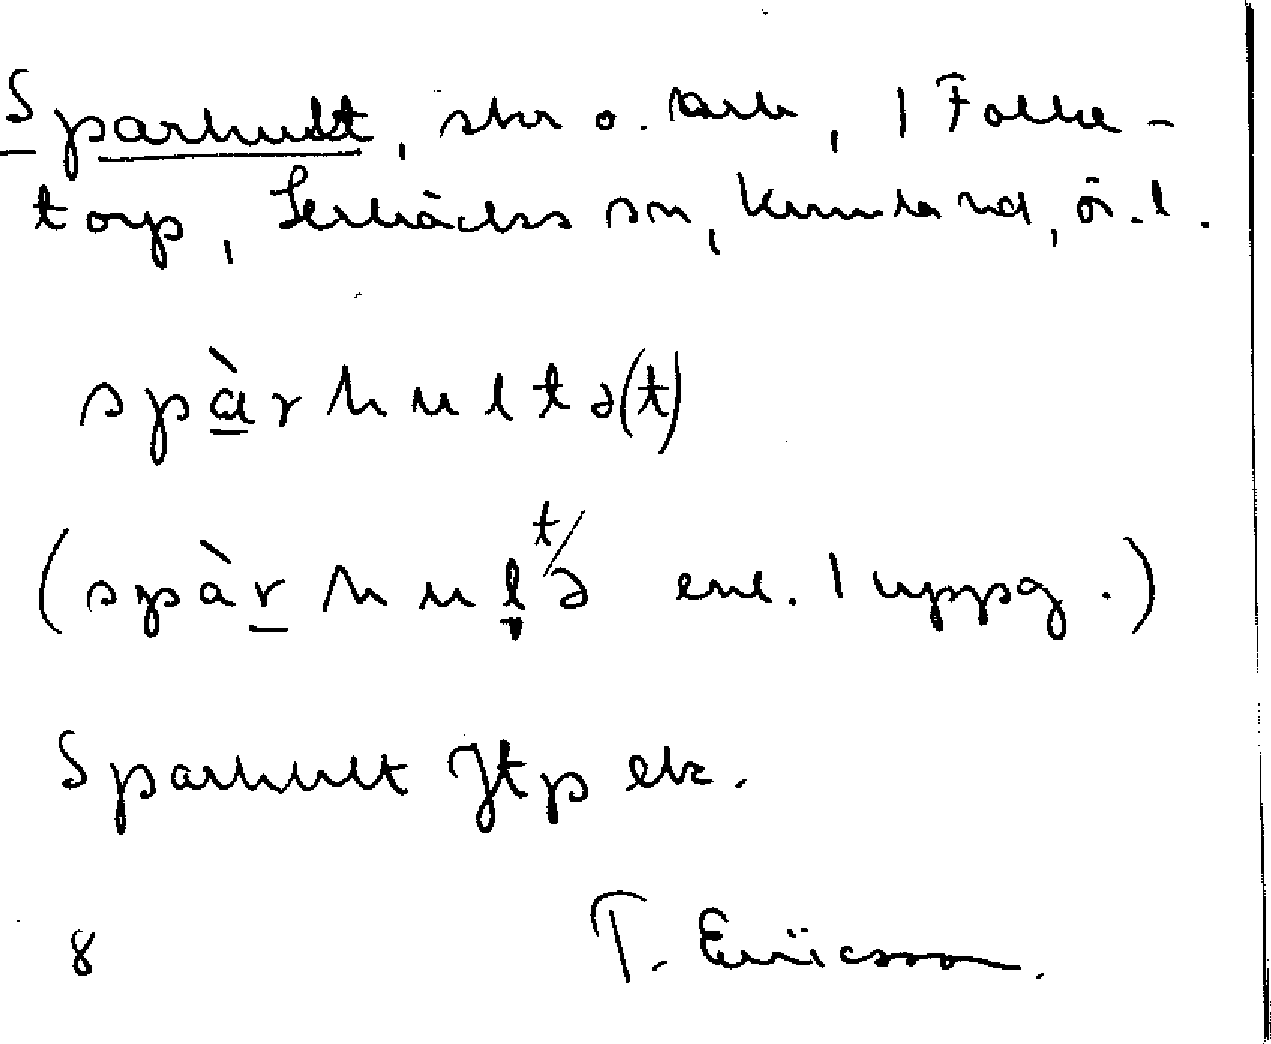 Sparhult, skr o. bark, 1 Folke-
torp, Lerbäcks sn, Kumla hd, ör. l.
spàrhultə(t)
(spàrhul t/ə enl. 1 uppg.)
Sparhult Jtp etc.
8 T. Ericsson.